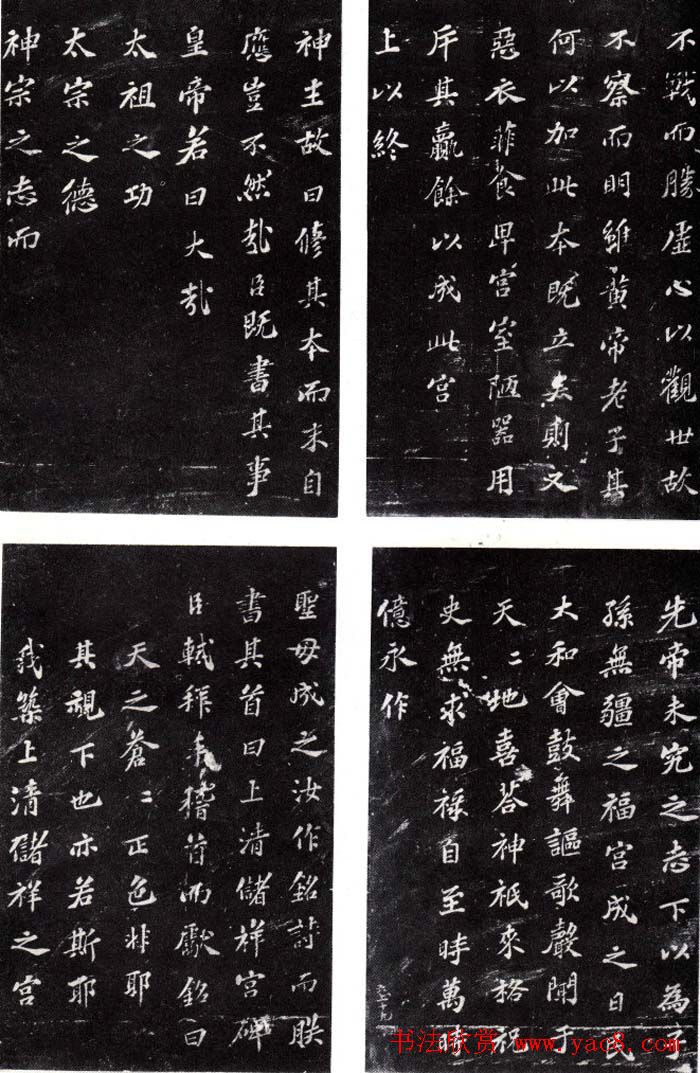 不戰而勝虛心以觀世故
不察而明雖黃帝老子其
何以加此本既立矣則又
惡衣菲食卑宮室陋器用
斥其贏餘以成此宮
上以終
先帝未究之志下以為子
孫無疆之福宮成之日民
大和會鼓舞謳歌聲聞于
天〻地喜荅神祇來格祝
史無求福祿自至時萬時
億永作
神主故曰修其本而末自
應豈不然哉臣既書其事
皇帝若曰大哉
太祖之功
太宗之德
神宗之志而
聖母成之汝作銘詩而朕
書其首曰上清儲祥宮碑
臣軾拜手稽首而獻銘曰
天之蒼〻正色非耶
其視下也亦若斯耶
我築上清儲祥之宮
书法欣赏 www.yac8.com